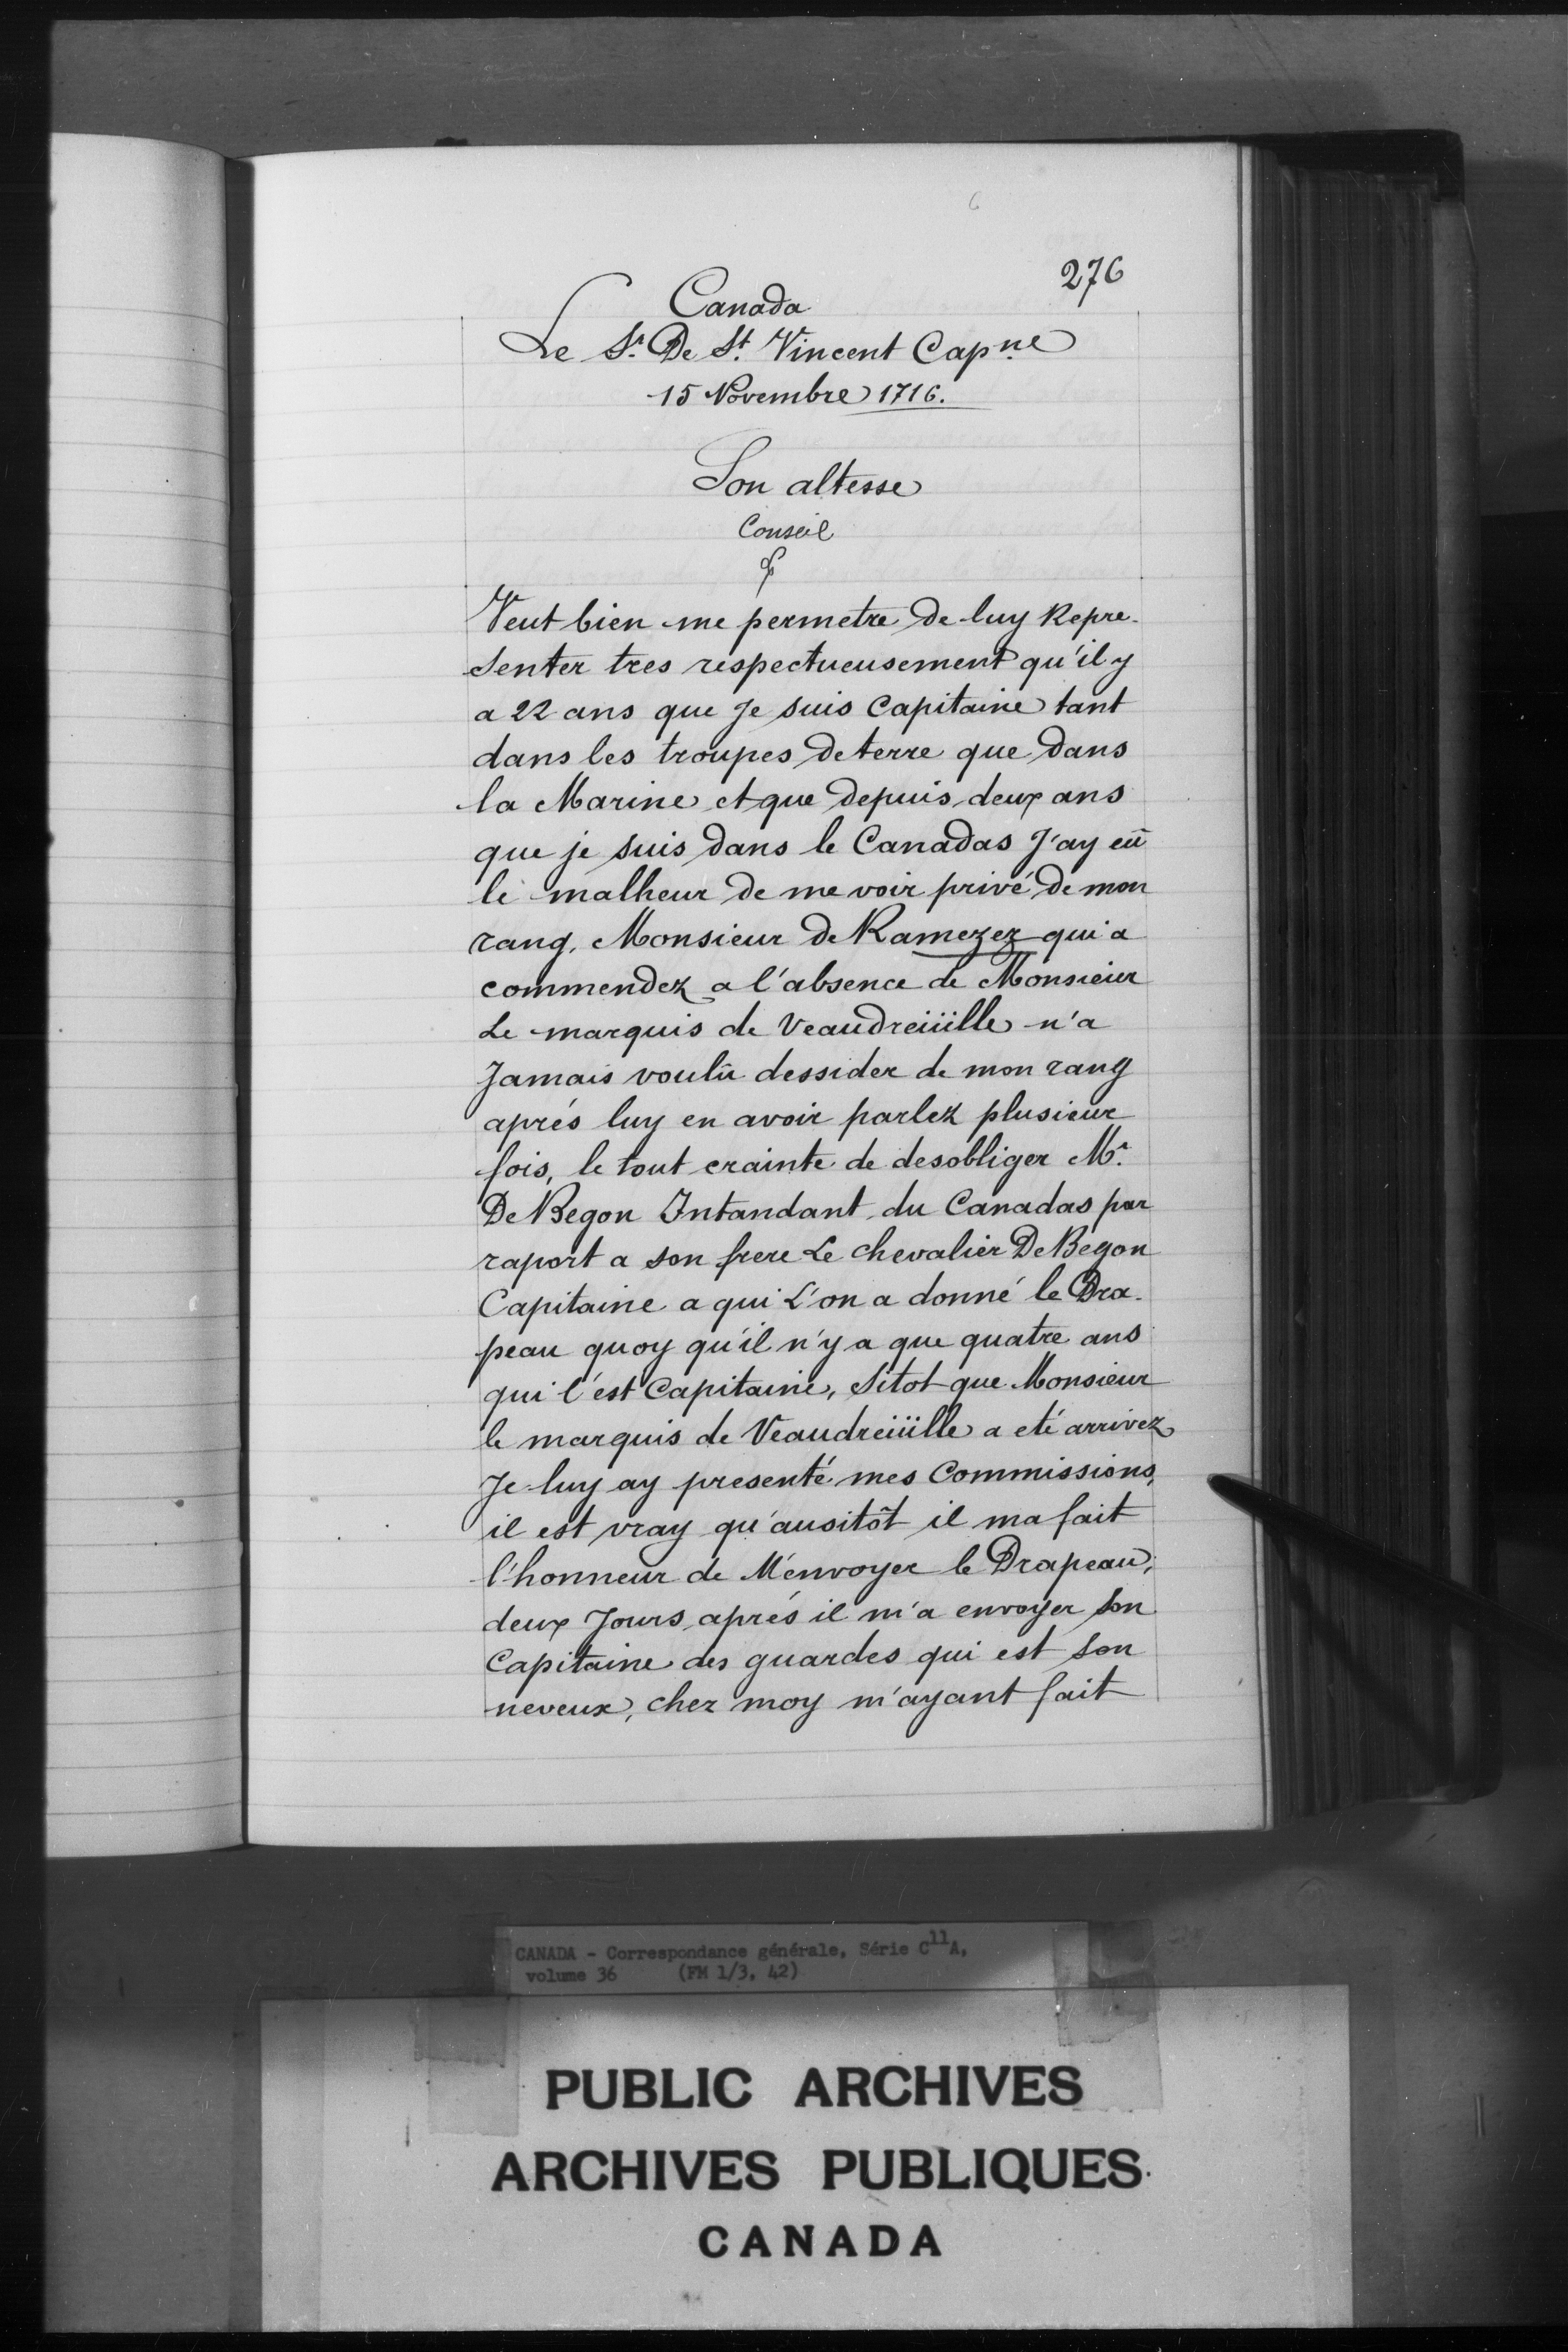 276
Canada
Le Sr. De St. Vincent Capne
15 Novembre 1716.
Son altesse
Conseil
Veut bien me permetre de luy Repre-
senter tres respectueusement qu'il y
a 22 ans que Je suis Capitaine tant
dans les troupes de terre que dans
la Marine et que depuis deux ans
que je suis dans le Canadas J'ay eû
le malheur de me voir privé de mon
rang, Monsieur de Ramezez qui a
commendez a l'absence de Monsieur
Le marquis de Veaudreiiille n'a
Jamais voulû dessider de mon rang
aprés luy en avoir parlez plusieur
fois, le tout crainte de desobliger Mr.
De Begon Intandant du Canadas par
raport a son frere Le chevalier De Begon
Capitaine a qui L'on a donné le Dra-
peau quoy qu'il n'y a que quatre ans
qui l'est Capitaine, Sitot que Monsieur
le marquis de Veaudreiiille a eté arrivez
Je luy ay presenté mes Commissions,
il est vray qu'ausitôt il ma fait
l'honneur de M'envoyer le Drapeau;
deux Jours aprés il m'a envoyer son
Capitaine des guardes qui est son
neveux, chez moy m'ayant fait
CANADA - Correspondance générale, Série C11A,
volume 36 (FM 1/3, 42)
PUBLIC ARCHIVES
ARCHIVES PUBLIQUES
CANADA